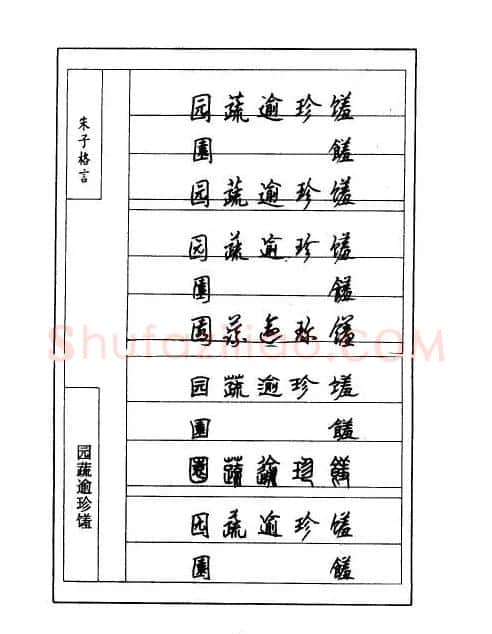 朱子格言
园蔬逾珍馐
园蔬逾珍馐
園 饈
园蔬逾珍馐
园蔬逾珍馐
園 饈
園蔬逾珍馐
园蔬逾珍馐
園 饈
園蔬逾珍饈
园蔬逾珍馐
園 饈
Shufaziliao.COM